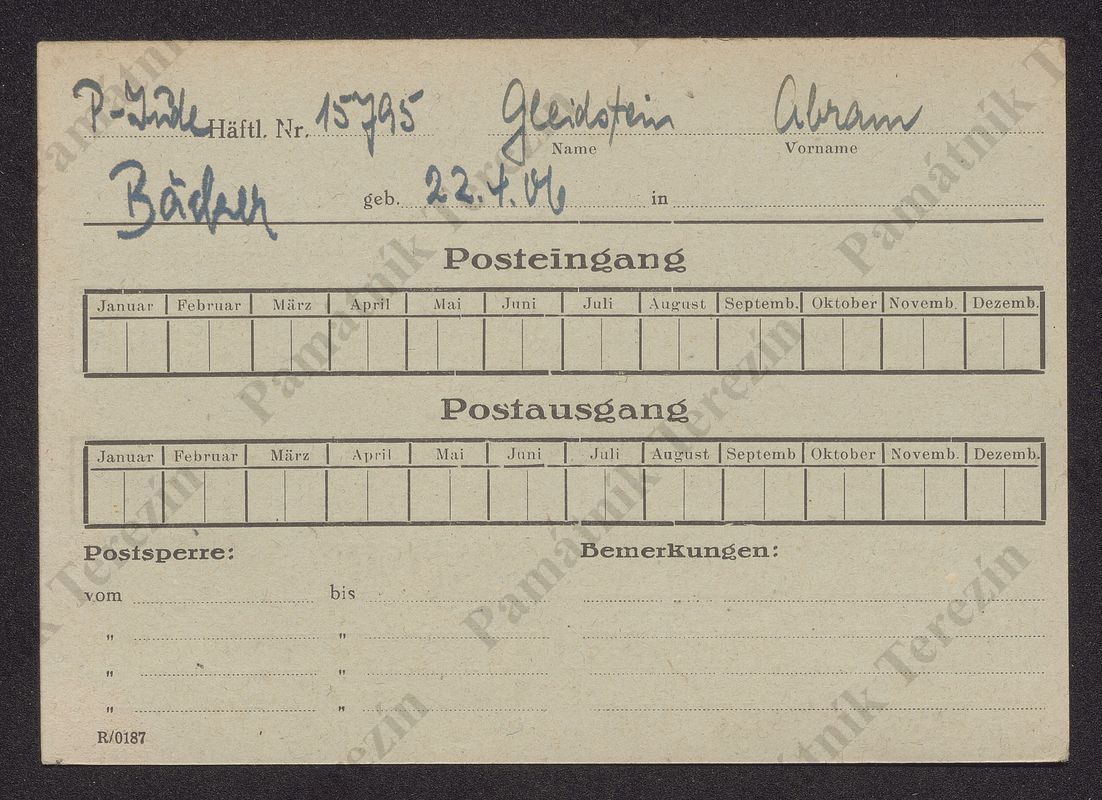 P-Jude Häftl. Nr. 15795 Gleidstein Abram
Name Vorname
Bäcker geb. 22.4.06 in
Posteingang
Januar Februar März April Mai Juni Juli August Septemb. Oktober Novemb. Dezemb.
Postausgang
Januar Februar März April Mai Juni Juli August Septemb Oktober Novemb. Dezemb.
Postsperre: Bemerkungen:
vom bis
" "
" "
" "
R/0187
Památník Terezín